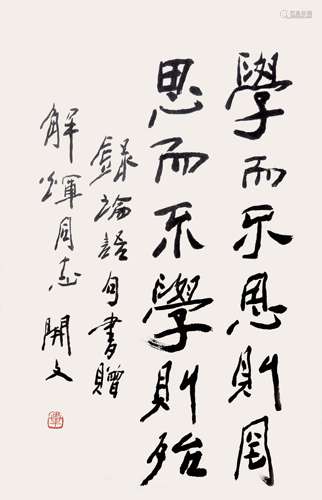 學而不思則罔
思而不學則殆
錄論語句書贈
解暉同志 開文